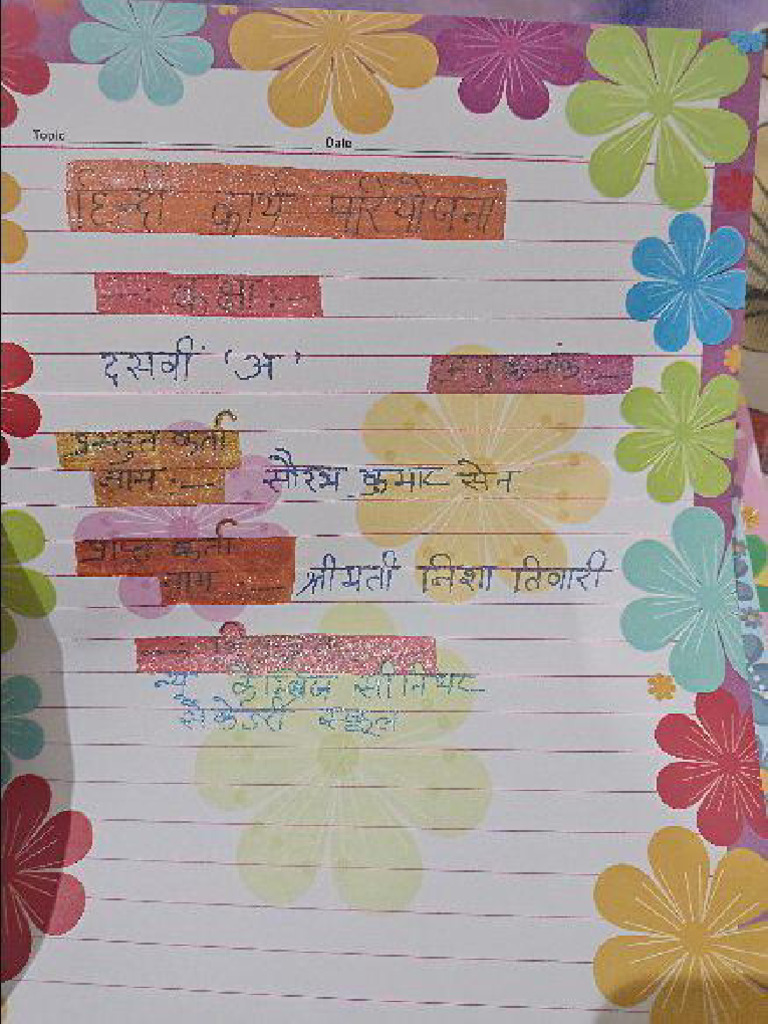 Topic Date
हिन्दी कार्य परियोजना
कक्षा :-
दसवीं 'अ' अनुक्रमांक
प्रस्तुत कर्ता
नाम :- सौरभ कुमार सेन
प्राप्त कर्ता
नाम श्रीमती निशा तिवारी
न्यू कैम्ब्रिज सीनियर
सैकेंडरी स्कूल